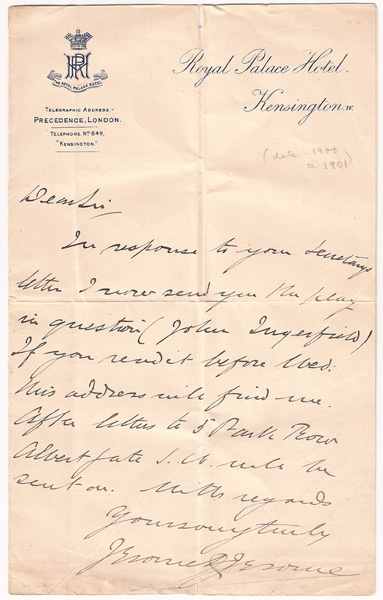 RPH
THE ROYAL PALACE HOTEL
TELEGRAPHIC ADDRESS -
PRECEDENCE, LONDON.
TELEPHONE Nº 849,
"KENSINGTON."
Royal Palace Hotel.
Kensington. W.
(date - 1900
or 1901)
Dear Sir
In response to your Secretarys
letter I now send you the play
in question (John Ingerfield)
If you read it before Wed:
this address will find me.
After letters to 5 Park Row
Albert Gate S.W. will be
sent on. With regards
Yours very truly
Jerome K Jerome